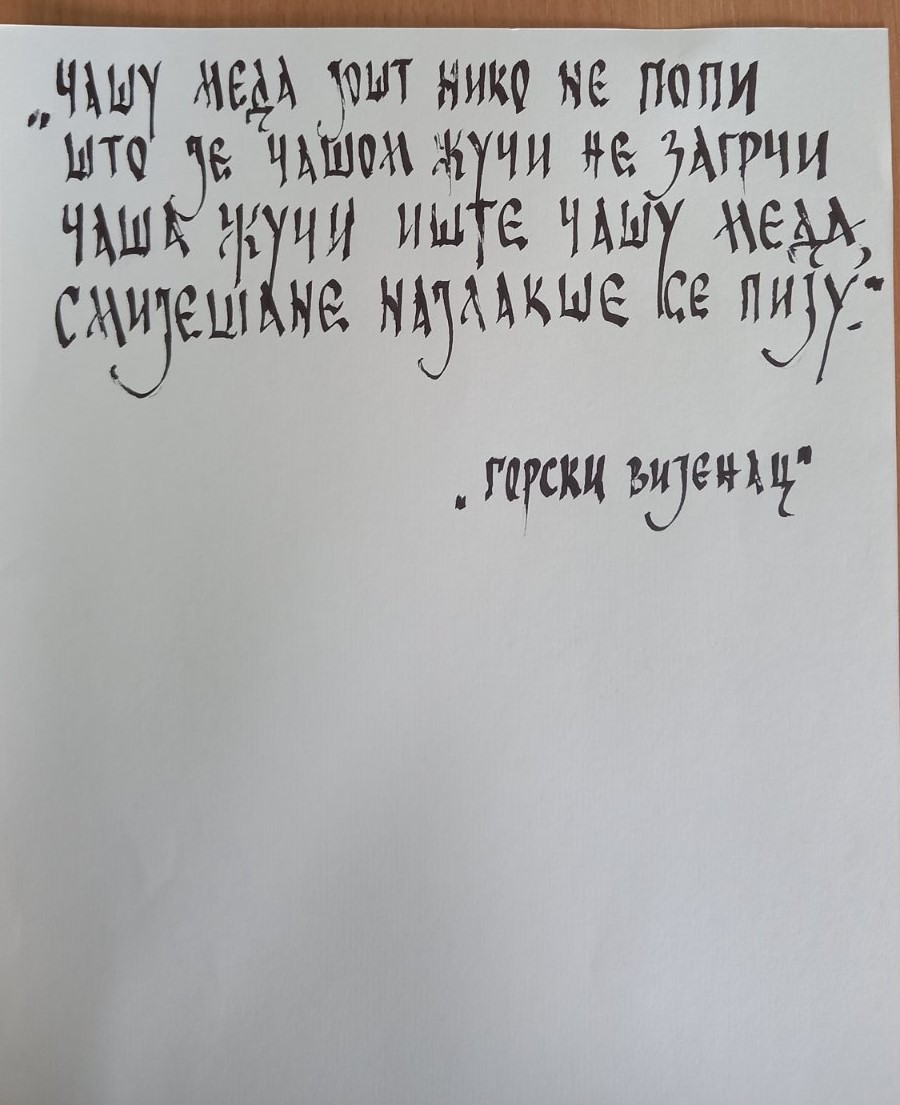 „ЧАШУ МЕДА ЈОШТ НИКО НЕ ПОПИ
ШТО ЈЕ ЧАШОМ ЖУЧИ НЕ ЗАГРЧИ
ЧАША ЖУЧИ ИШТЕ ЧАШУ МЕДА,
СМИЈЕШАНЕ НАЈЛАКШЕ СЕ ПИЈУ.“
„ГОРСКИ ВИЈЕНАЦ“